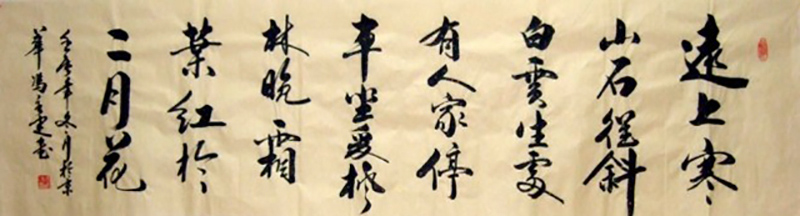 遠上寒
山石徑斜
白雲生處
有人家停
車坐愛楓
林晚霜
葉紅於
二月花
壬辰年冬月於京
華馮書